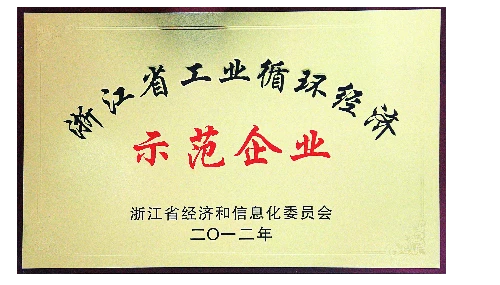 浙江省工业循环经济
示范企业
浙江省经济和信息化委员会
二〇一二年